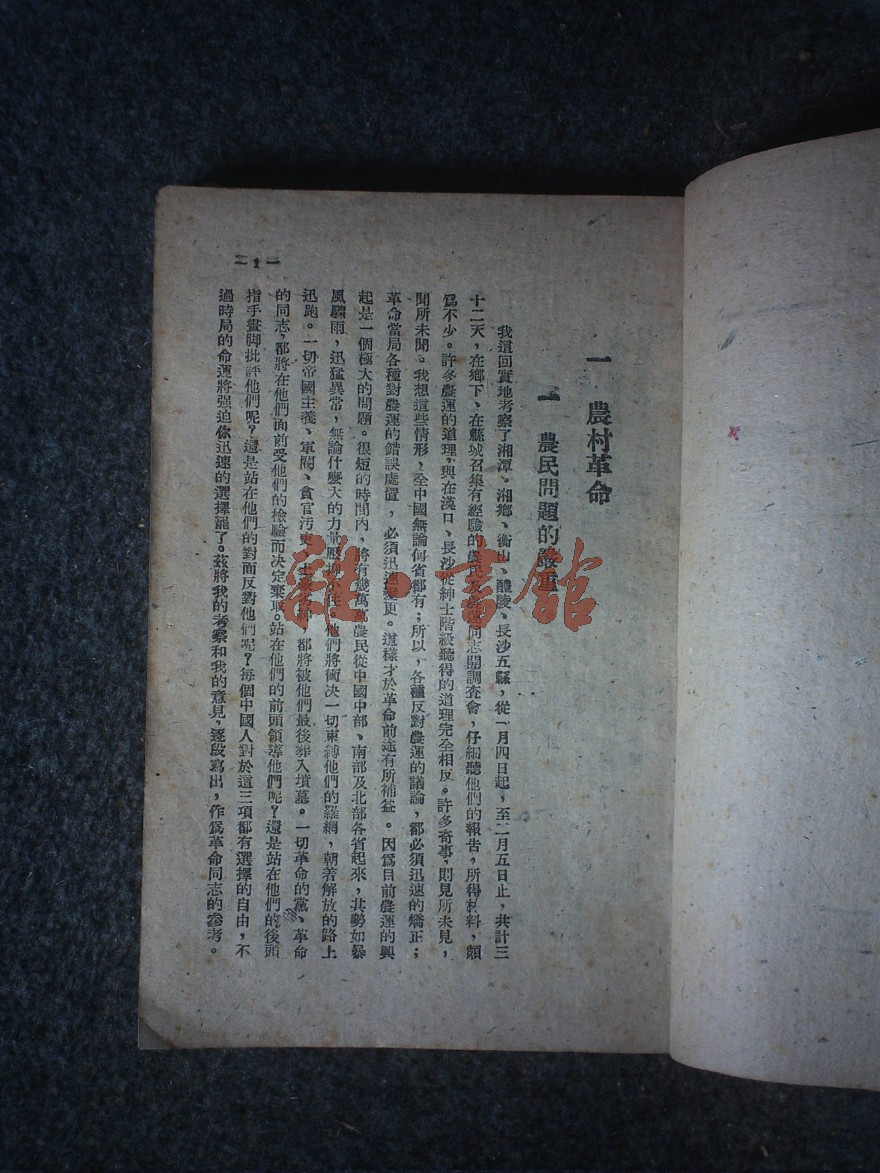 一 農村革命
一 農民問題的嚴重
我這回實地考察了湘潭、湘鄉、衡山、醴陵、長沙五縣,從一月四日起,至二月五日止,共計三
十二天,在鄉下、在縣城召集有經驗的農民及農運同志開調查會,仔細聽他們的報告,所得材料,頗
爲不少。許多農運的道理,與在漢口、長沙從紳士階級聽得的道理完全相反。許多奇事,則見所未見,
聞所未聞。我想這些情形,全中國無論何省都有;所以,各種反對農運的議論,都必須迅速的矯正;
革命當局各種對農運的錯誤處置,必須迅速變更。這樣才於革命前途有所補益。因爲目前農運的興
起是一個極大的問題。很短的時間內,將有幾萬萬農民從中國中部、南部及北部各省起來,其勢如暴
風驟雨,迅猛異常,無論什麼大的力量壓抑不住。他們將衝決一切束縛他們的羅網,朝着解放的路上
迅跑。一切帝國主義、軍閥、貪官汚吏、土,都將被他們最後葬入墳墓。一切革命的黨、革命
的同志,都將在他們面前受他們的檢驗而決定棄取。站在他們的前頭領導他們呢?還是站在他們的後頭
指手畫脚批評他們呢?還是站在他們的對面反對他們呢?每個中國人對於這三項都有選擇的自由,不
過時局的命運將强迫你迅速的選擇罷了。茲將我的考察和我的意見,逐段寫出,作爲革命同志的參考。
一1一
雜·書館